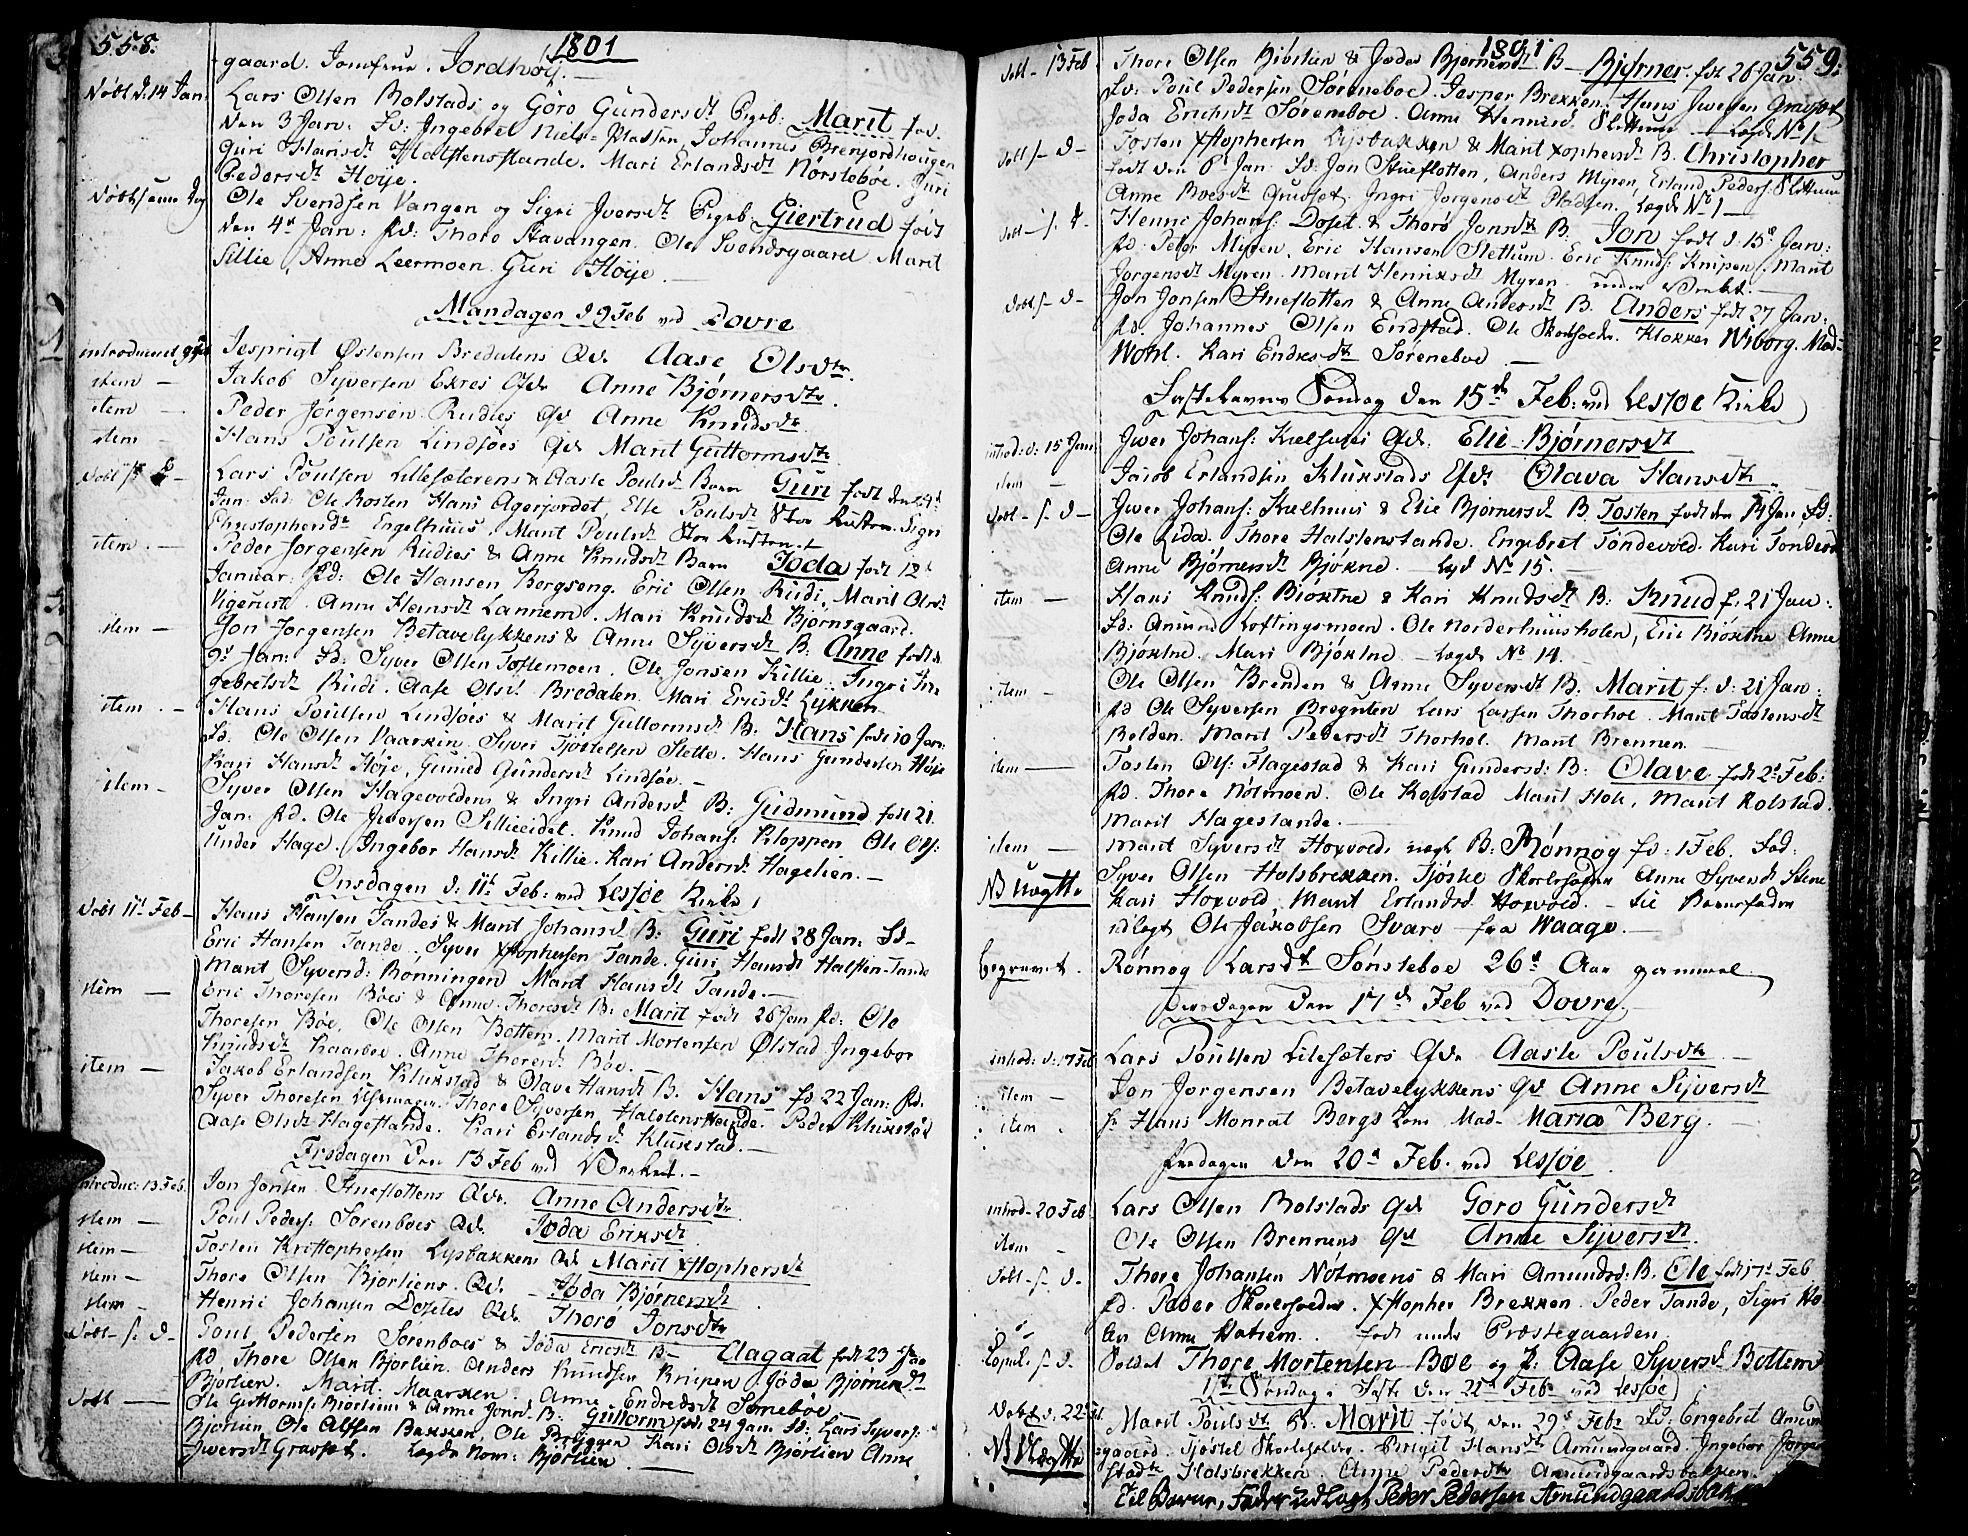 558. 1801
gaard. Jomfrue Jordhøy.
Døbt d: 14 Jan. Lars Olsen Bolstads og Goro Gundersdt Pigeb: Marit fød.
den 3 Jan. Fd: Ingebret Niels-Pladsen, Johannes Brenjordhougen
Guri Hansdt Halstenstande. Mari Erlandsdt Nørstebøe. Guri
Pedersdt Høje.
Døbt samme Dag Ole Svendsen Vangen og Sigri Iversdt Pigeb. Giertrud født
den 4de Jan: Fd: Thore Stavangen. Ole Svendsgaard Marit
Sillie, Anne Leermoen. Guri Høije
Mandagen d 9 Feb ved Dovre
introduceret 9 Feb Jesprigt Østensen Bredalens Qv. Aase Olsdtr.
item — Jakob Syversen Ekres Qv. Anne Bjørnersdtr.
item — Peder Jørgensen Rudies Qv Anne Knudsdtr.
item — Hans Poulsen Lindsøes Qv Marit Guttormsdtr
Døbt s. d — Lars Poulsen Lillesæterens & Aasle Poulsd Barn Guri født den 24d
Jan. Fad: Ole Rosten Hans Agerjordet, Else Poulsdt Sigri
Christophersdt Engelhuus, Marit Poulsdt
item. — Peder Jørgensen Rudies & Anne Knudsdt Barn Joda født 12d
Januar: Fd: Ole Hansen Bergseng. Eric Olsen Rudi, Marit Olsdt
Vigerust. Anne Hemsdt Lannem. Mari Knudsdt Bjørnsgaard.
item — Jon Jorgensen Betavelykkens & Anne Syversdt B: Anne født d.
9d Jan: Fd: Syver Olsen Toftemoen. Ole Jonsen Killie. Ingri In-
gebretsdt Rudi. Aase Olsdt Bredalen. Mari Ericsdt Lykken
item. — Hans Poulsen Lindsøes & Marit Guttormsdt B. Hans født 10 Jan:
Fd. Ole Olsen Vaarkin. Syver Tjøstelsen Slette. Hans Gundersen Høje
Kari Hansdt Høje, Gunied Gundersdt Lindsøe. —
item — Syver Olsen Hagevoldens & Ingri Andersd B: Gudmund født 21.
Jan. Fd. Ole Iversen Sillieeidet. Knud Johans: Kloppen Ole Ols:
under Hage. Ingebor Hansdt Killie. Kari Andersdt Hagelien. —
Onsdagen d: 11t Feb: ved Lessøe Kirke
Døbt 11t Feb — Hans Hansen Tandes & Marit Johansd B: Guri født 28 Jan: Fd-
Eric Hansen Tande, Syver Xstophersen Tande. Guri Hansdt Halsten-Tande
Marit Syversd: Bonningen Marit Hansdt Tande. —
item — Eric Thoresen Bøes & Anne Thoresdt B: Marit født 26 Jan Fd: Ole
Thoresen Bøe, Ole Olsen Bottem, Marit Mortensen Ølstad, Ingebor
Knudsdt Kaarboe. Anne Thoresdt Bøe. —
item — Jakob Erlandsen Klukstad & Olave Hansdt B. Hans fd 22 Jan: Fd:
Syver Thoresen Thore Syversen Halstenstande. Peder Klukstad
Aase Olsdt Hagestande. Kari Erlandsdt Klukstad. —
Fredagen Den 13 Feb ved Værket. —
introduc: 13 Feb. Jon Jonsen Stueflottens Qv. Anne Andersdtr
item — Poul Peders: Sorenboes Qv. Joda Eriksdt
item — Tosten Kristophersen Lysbakkens Qv Marit Xstophersdt
item — Thore Olsen Bjorliens. Qv. Joda Bjørnersdt
item — Henric Johansen Dosetes Qv. Thoro Jonsdtr
Døbt- s: d — Poul Pedersen Sorenboes & Joda Ericsdt B— Aagaat født 23 Jan
Fd Thore Olsen Bjorlien. Anders Knudsen Knipen Joda Bjørnersdt
Bjorlien. Marit Maarken. Anne Endresdt Sornebøe
Døbt — Ole Guttorms: Bjorliens & Anne Jonsd. B: Guttorm født 24 Jan. Fd: Lars Syvers:
Bjorlien Ole Alfsen Bakken, Ole Bryggen Kari Olsdt Bjorlien Anne
Iversdt Gravset. Lægds Nom: Bjorlien —
1801 559.
Døbt — 13 Feb Thore Olsen Bjorlien & Joda Bjørnersdt B— Bjørner fdt 26 Jan:
Fd: Poul Pedersen Søreneboe. Jesper Brekken. Hans Iversen Gravset
Joda Erichsdt Sørenebøe. Anne Slettum — Lægds No 1
Døbt s- d — Tosten Xstophersen Lysbakken & Marit Xophersdt B. Christopher
født den 8de Jan. Fd: Jon Stueflotten, Anders Myren, Erland Peders: Slettum
Anne Boesdt Qvidset. Ingri Jorgensdt Pladsen. Lægds No 1 —
Døbt - s. d. Henric Johans: Doset & Thorø Jonsdtr B: Jon født d: 15d Jan:
Fd: Peter Myren, Eric Hansen Slettum. Eric Knuds: Knipen. Marit
Jorgensdt Myren. Marit Henriksdt Myren. under Værket. —
Døbt s- d — Jon Jonsen Stueflotten & Anne Andersdt B. Anders født 27 Jan:
Fd. Johannes Olsen Endstad. Ole Skolhoeder. Klokker Wiborg. Mad-
Wohl. Kari Endresdtr Sørenebøe —
Fastelavns Søndag Den 15de Feb: ved Lessøe Kirke
introd: d: 15 Jan: Iver Johans: Kielhuus Qv. Elie Bjørnersdt
item — Jacob Erlandsen Klukstads Qv. Olava Hansdtr.
Døbt — s. d — Iver Johans: Kielhuus & Elie Bjørnersdt B. Tosten født den 14 Jan Fd:
Ole Lida. Thore Halstenstande. Engebret Tondevold. Kari Tondevold
Anne Bjørnersdt Bjøkne. — Lægd No 15. —
item — Hans Knuds: Bjøkne & Kari Knudsdt B: Knud f. 21 Jan:
Fd: Amund Loftingsmoen. Ole Norderhuusholen, Eric Bjøkne Anne
Bjøkne. Mari Bjøkne. — Lægds No 14. —
item — Ole Olsen Brenden & Anne Syversdt B: Marit f. d: 21 Jan:
Fd Ole Syversen Lars Larsen Thorhol. Marit Tostensdt
Bolden. Marit Pedersdt Thorhol. Marit Brennen. —
item — Tosten Ols: Flagestad & Kari Gundersd: B: Olave født 2d Feb:
Fd. Thore Nolmoen. Ole Kolstad Marit Hole, Marit Kolstad.
Marit Hagestande. —
item — Marit Syversdt Hoxvold uægt B: Rønnog fd: 1 Feb. Fad:
NB Uægte Syver Olsen Holsbrekken. Tjøstel Skoleholder Anne Syversd Skene
Kari Hoxvold, Marit Erlandsd. Hoxvold. — til Barnefader
udlagt Ole Jakobsen Svare fra Waage. —
begravet. Rønnog Larsdt Sønstebøe 26d Aar gammel.
Tirsdagen Den 17d Feb ved Dovre.
introd: d: 17 Feb Lars Poulsen Lilesæters Qv. Aasle Poulsdtr. —
item — Jon Jorgensen Betavelykkens Qv Anne Sijversdt
item . Hr Hans Monrat Bergs Kone Mad. Maria Berg. —
Fredagen den 20d Feb. ved Lessøe.
introd — 20 Feb Lars Olsen Bolstads Qv Goro Gundersdt
item — Ole Olsen Brennens Qv Anne Sijversdt.
Døbt — s. d. Thore Johansen Nolmoens & Mari Amundsd: B. Ole født 17d Feb
Fd. Peder Skoleholder. Xstopher Brekken. Peder Tande, Sigri Ho-
 Anne Hatrem. født under Præstegaarden.
Copul. s. d. Soldat Thore Mortensen Bøe og P: Aase Syversd Bottem
1te Søndag i Faste den 22d Feb: ved Lessøe)
Døbt d. 22 Feb. Marit Poulsdt B. Marit født den Feb: Fd: Engebret Amund-
NB Uægte sgaard. Tjøstel Skoleholder. Birgit Hansdtr Amundgaard. Ingebor Jorgen-
sdtr Holsbrekken. Anne Pedersdtr Amundgaardsbakken.
til Barne Fader udlagt Peder Pedersen Amundgaardsbakken